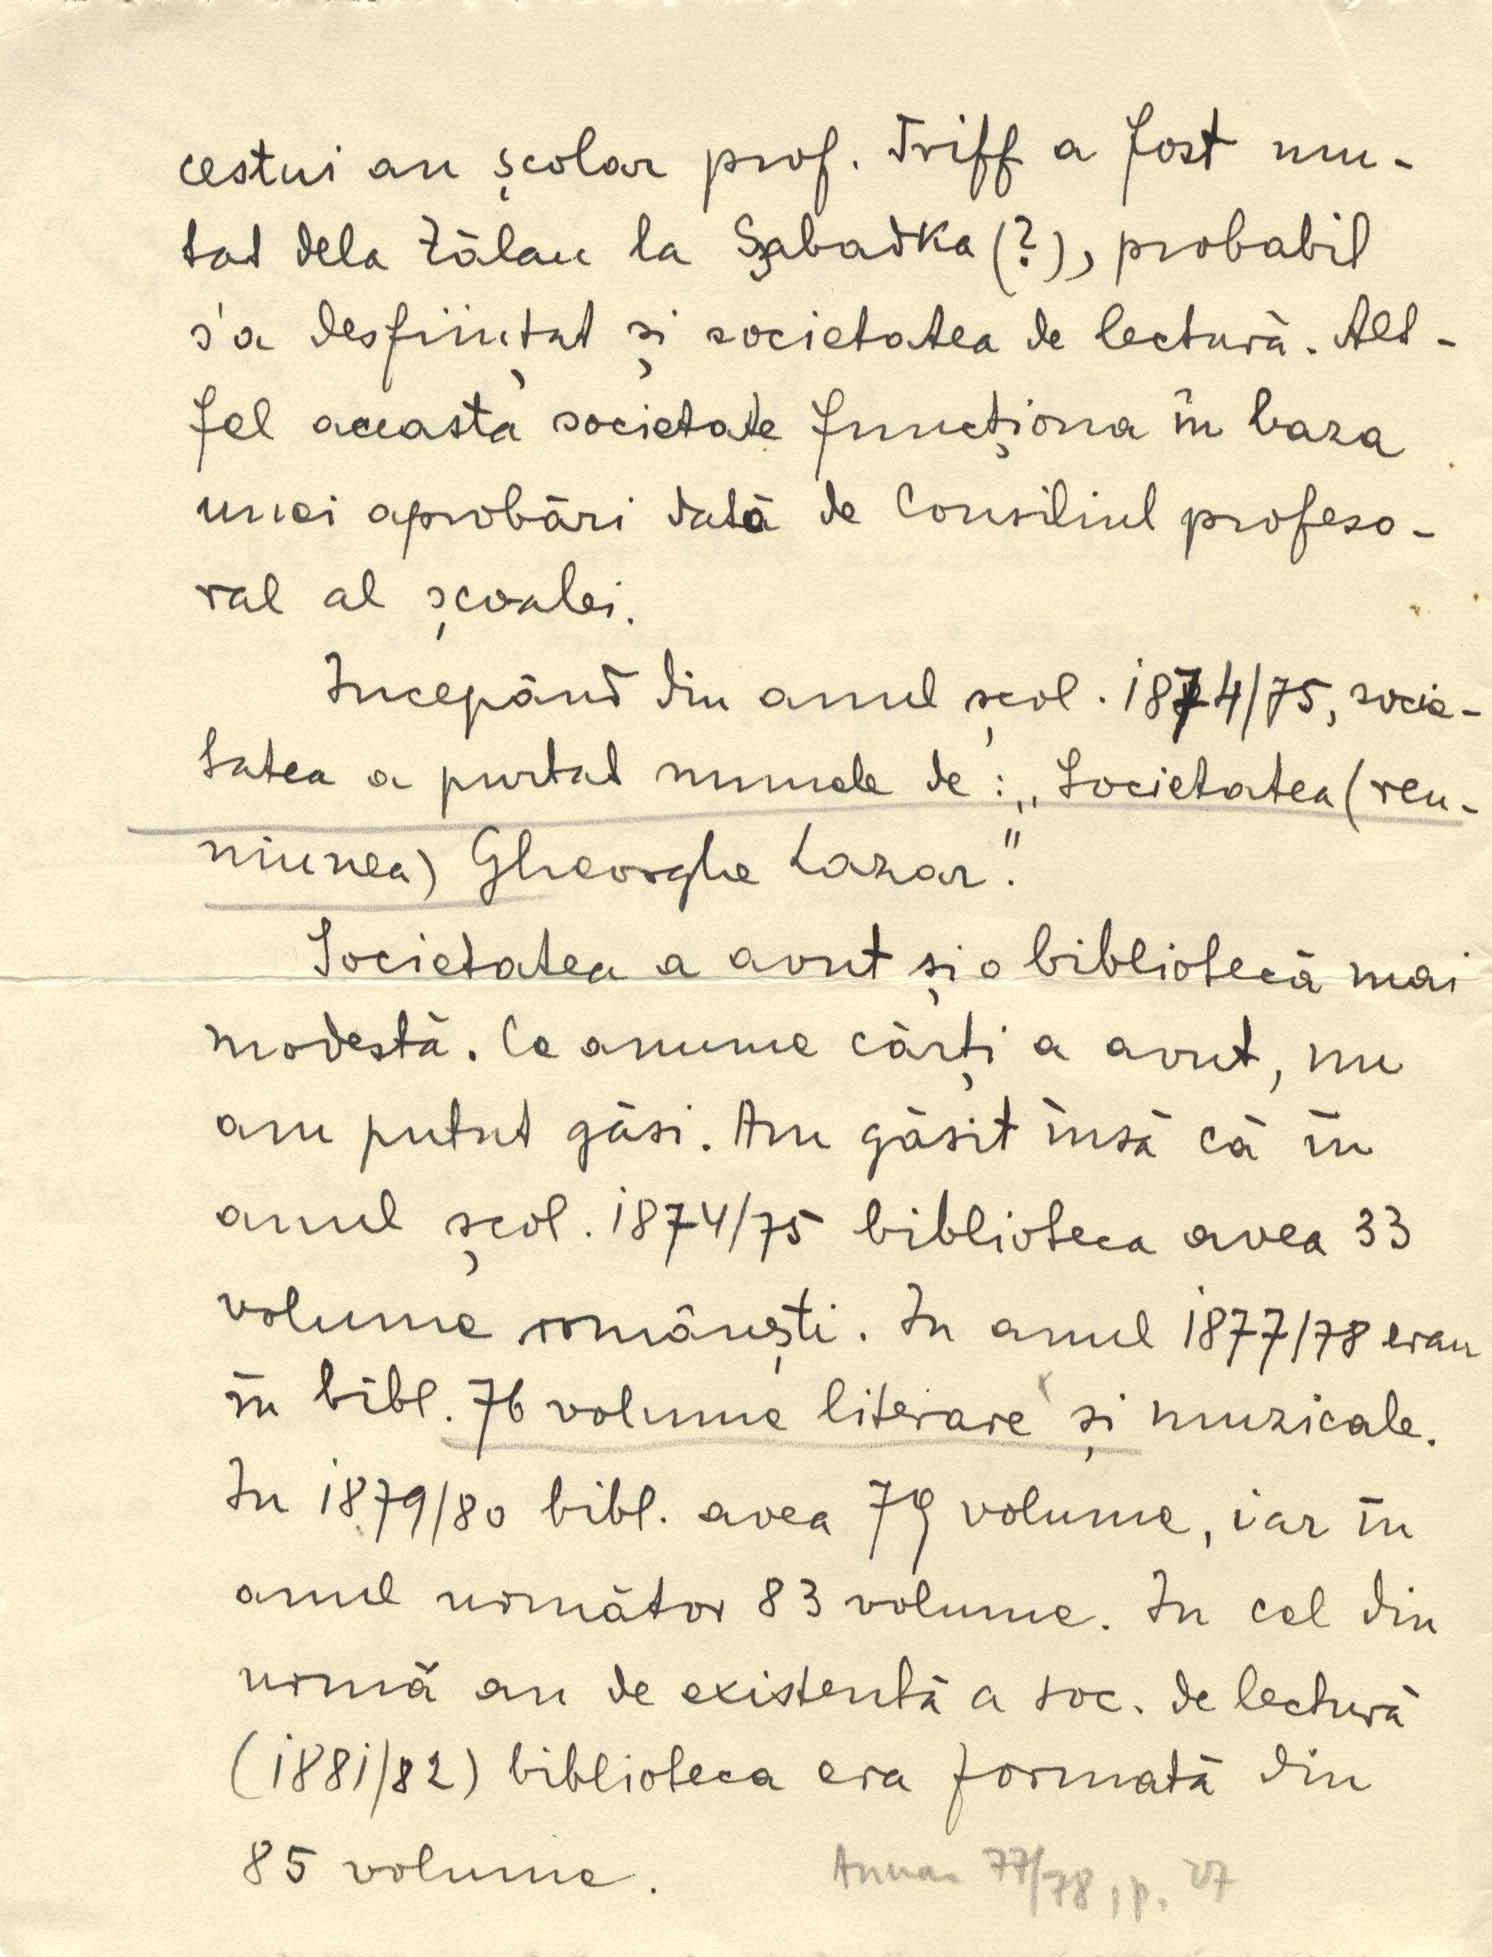 cestui an școlar prof. Triff a fost mu-
tat dela Zălau la Szabadka (?), probabil
s'a desființat și societatea de lectură. Alt-
fel aceasta societate funcționa în baza
unei aprobări dată de Consiliul profeso-
ral al școalei.
Incepând din anul școl. 1874/75, socie-
tatea a purtat numele de: „Societatea (reu-
niunea) Gheorghe Lazar."
Societatea a avut și o bibliotecă mai
modestă. Ce anume cărți a avut, nu
am putut găsi. Am găsit însă că în
anul școl. 1874/75 biblioteca avea 33
volume românești. In anul 1877/78 erau
în bibl. 76 volume literare și muzicale.
In 1879/80 bibl. avea 79 volume, iar în
anul următor 83 volume. In cel din
urmă an de existentă a soc. de lectură
(1881/82) biblioteca era formată din
85 volume.
Anuar 77/78, p. 27